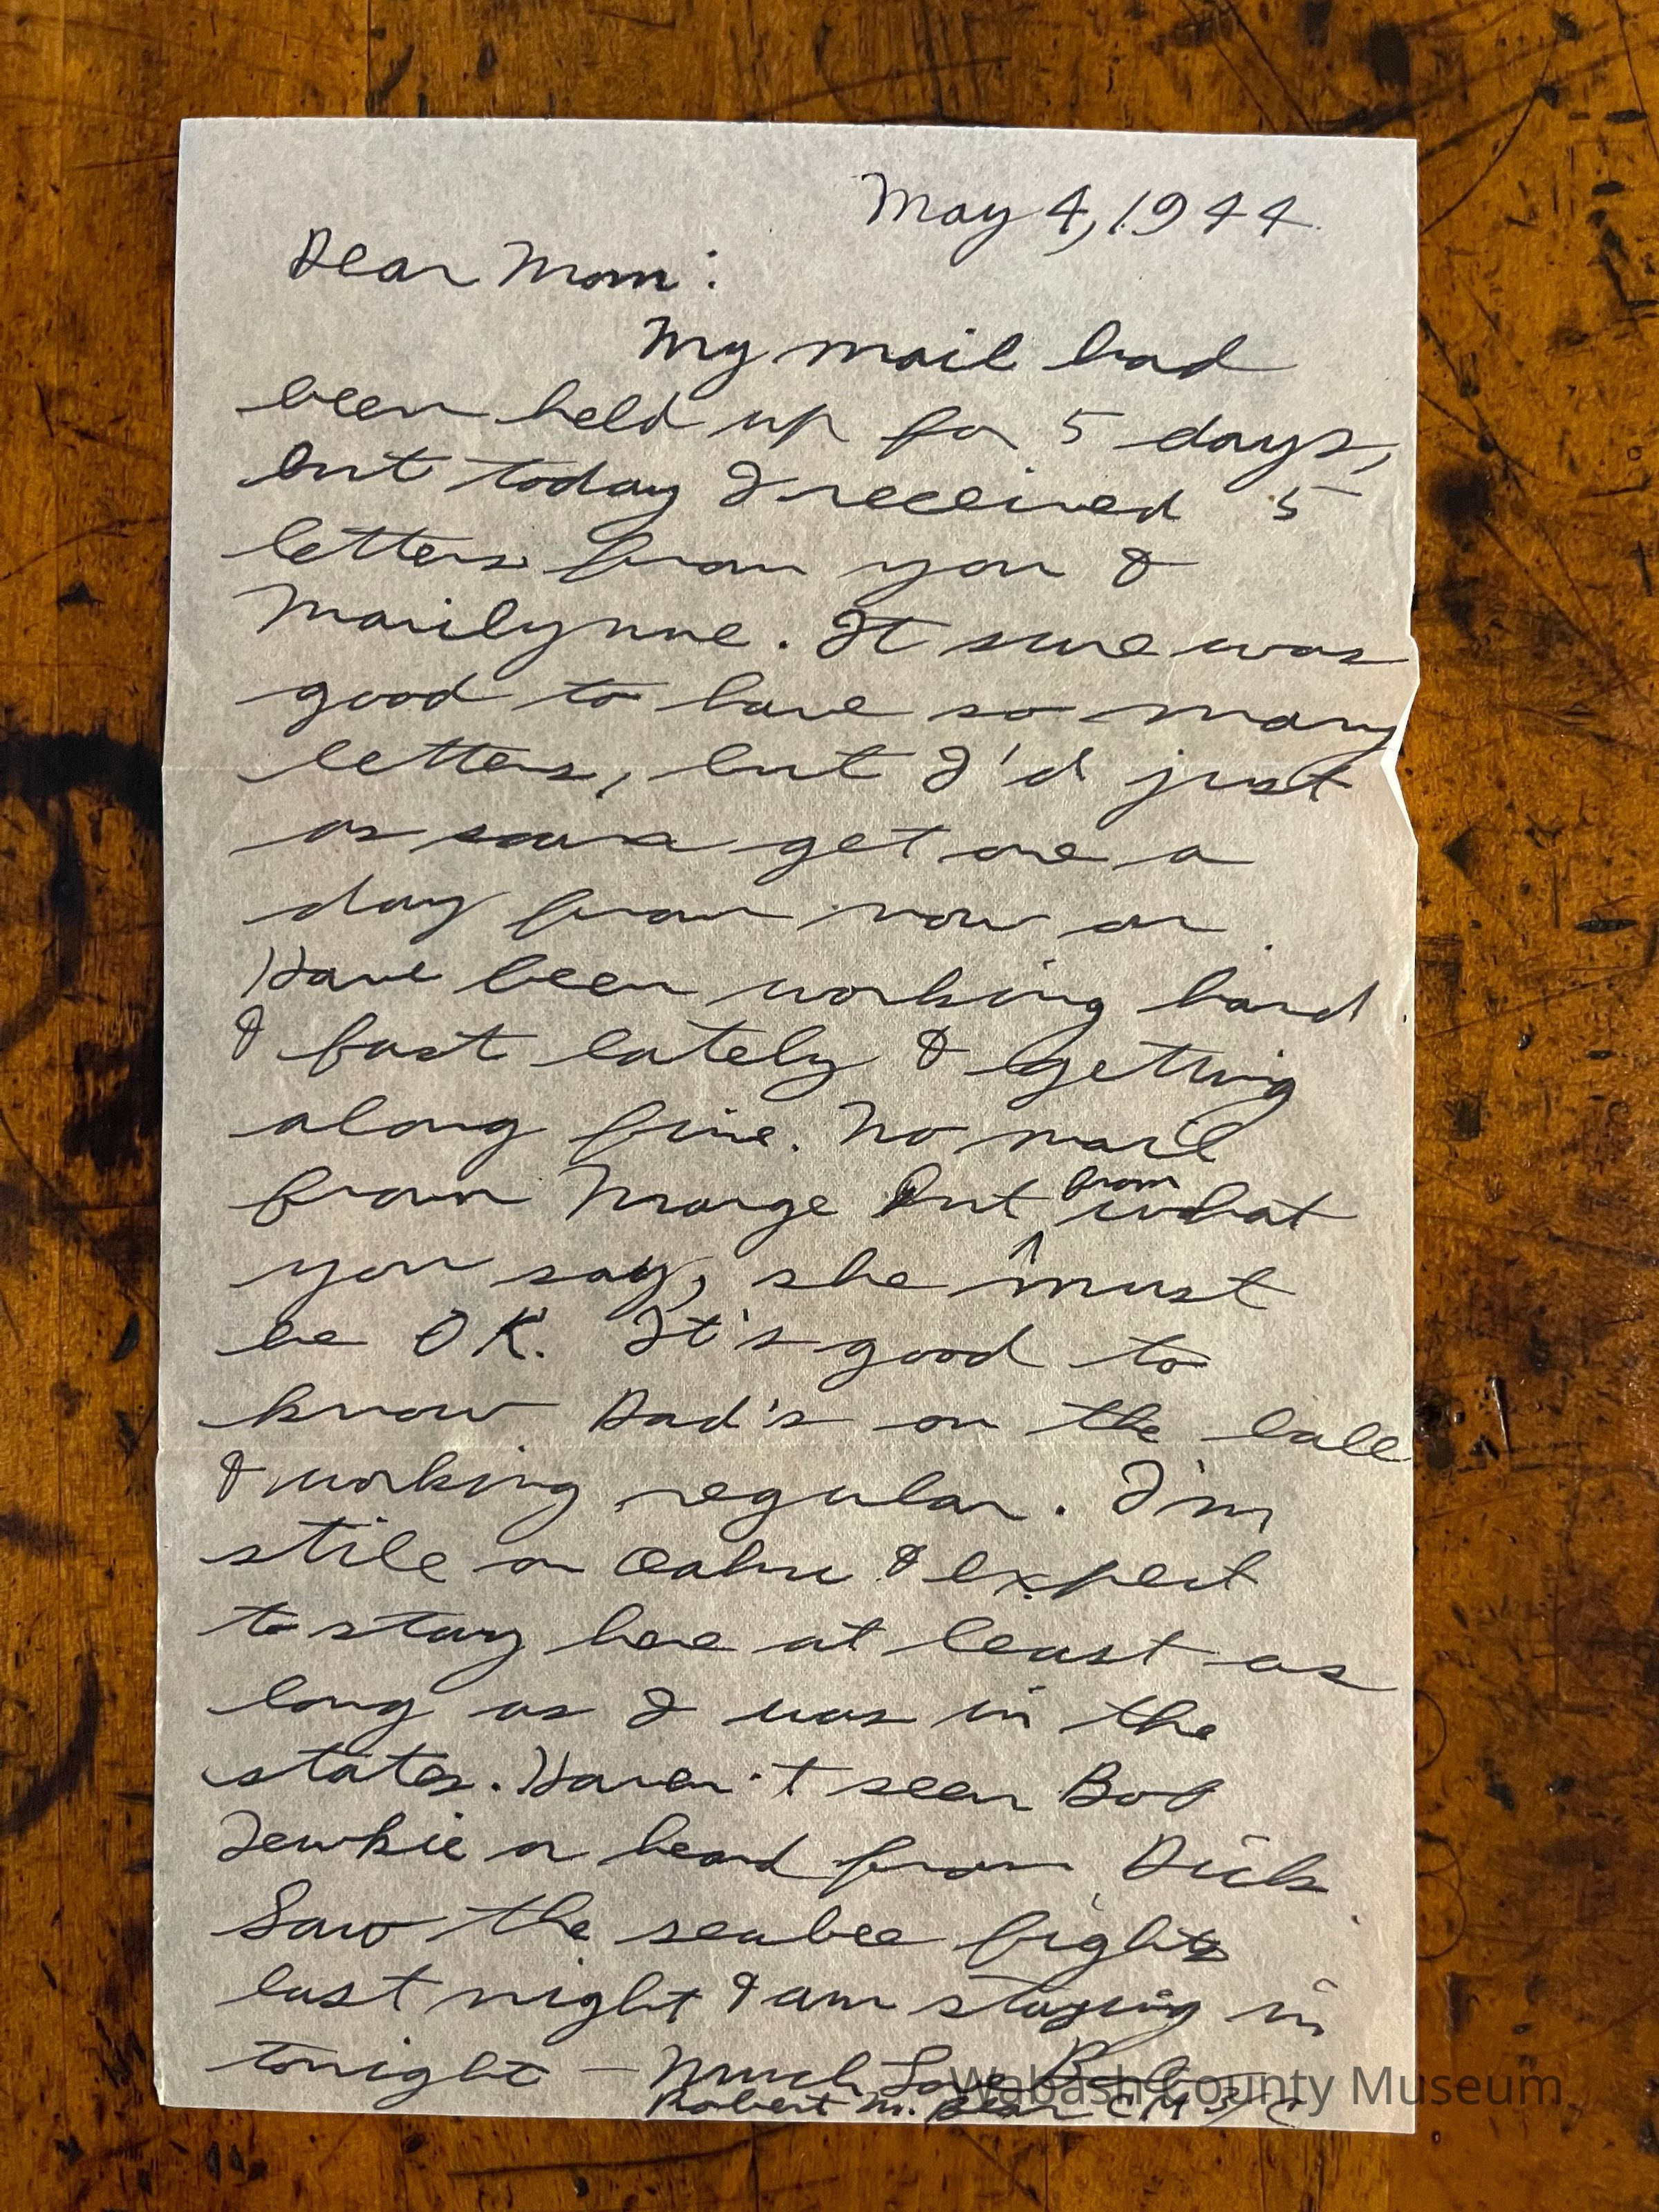 May 4, 1944
Dear Mom:
My mail had
been held up for 5 days,
but today I received 5
letters from you &
Marilynne. It sure was
good to have so many
letters, but I'd just
as soon get one a
day from now on.
Have been working hard
& fast lately & getting
along fine. No mail
from Marge but from what
you say, she must
be OK. It's good to
know Dad's on the ball
& working regular. I'm
still on Oahu & expect
to stay here at least as
long as I was in the
states. Haven't seen Bob
or heard from Dick.
Saw the seabee fights
last night & am staying in
tonight — Much Love Bob
Robert M. Bear CM 3/c
Wabash County Museum